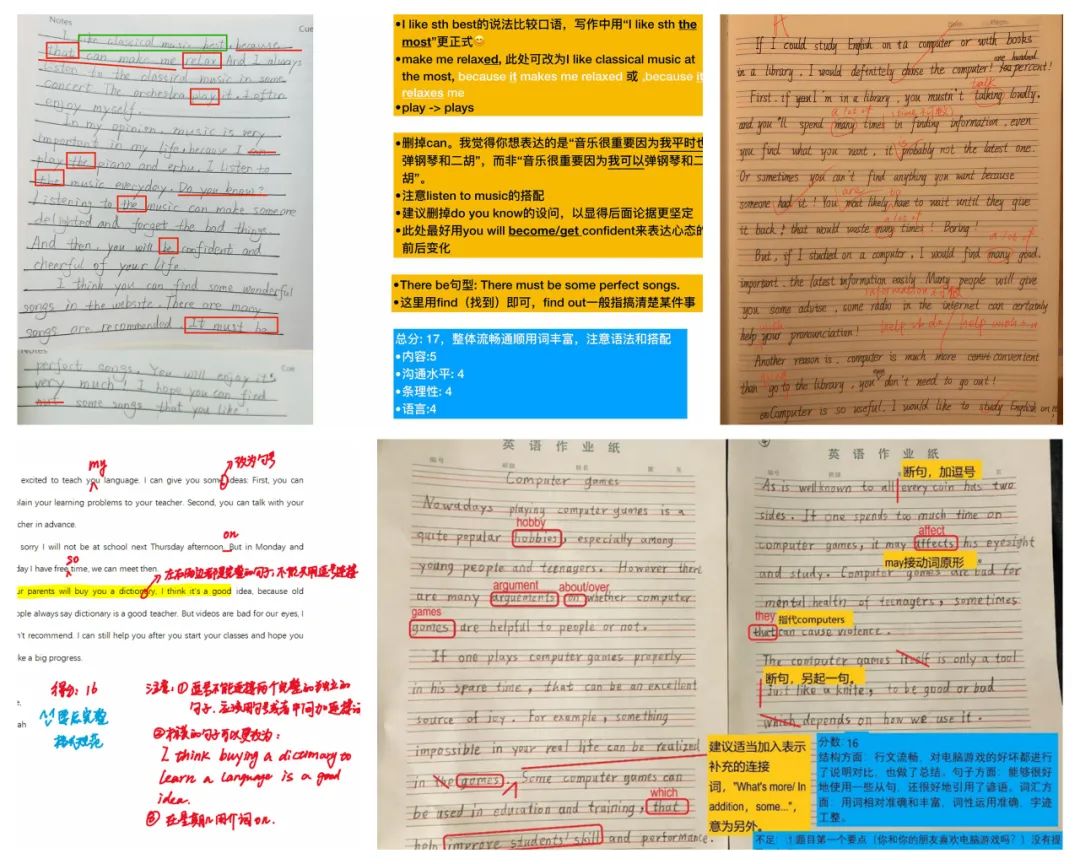 Notes
Cue
I like classical music best, because
that can make me relax. And I always
listen to the classical music in some
concert. The orchestra play it. I often
enjoy myself.
In my opinion, music is very
important in my life, because I can
play the piano and erhu. I listen to
the music everyday. Do you know?
Listening to the music can make someone
delighted and forget the bad things.
And then, you will be confident and
cheerful of your life.
I think you can find some wonderful
songs in the website. There are many
songs are recommended. It must be
Notes
Cue
perfect songs. You will enjoy it's
very much. I hope you can find
out some songs that you like.
•I like sth best的说法比较口语，写作中用“I like sth the
most”更正式😊
•make me relaxed, 此处可改为I like classical music at
the most, because it makes me relaxed 或 ,because it
relaxes me
•play -> plays
•删掉can。我觉得你想表达的是“音乐很重要因为我平时也
弹钢琴和二胡”，而非“音乐很重要因为我可以弹钢琴和二
胡”。
•注意listen to music的搭配
•建议删掉do you know的设问，以显得后面论据更坚定
•此处最好用you will become/get confident来表达心态的
前后变化
•There be句型: There must be some perfect songs.
•这里用find（找到）即可，find out一般指搞清楚某件事
总分: 17，整体流畅通顺用词丰富，注意语法和搭配
•内容:5
•沟通水平: 4
•条理性: 4
•语言:4
A
If I could study English on a computer or with books
in a library, I would definitely chose the computer! percent!
one hundred
First, if you I'm in a library, you mustn't talking loudly,
talk
and you'll spend many times in finding information, even
a lot of
you find what you want, it probably not the latest one.
Or sometimes you can't find anything you want because
someone had it! You most likely have to wait until they give
are
to
it back! that would waste many times! Boring!
a lot of
But, if I studied on a computer, I would find many good,
a lot of
important, the latest information easily. Many people will give
information不可数
you some advise, some radio in the internet can certainly
help your pronunciation!
with
help sb do / help with
Another reason is, computer is much more convenient
than go to the library, you don't need to go out!
Computer is so useful, I would like to study English on
my
改为句号
excited to teach you language. I can give you some ideas: First, you can
plain your learning problems to your teacher. Second, you can talk with your
cher in advance.
on
sorry I will not be at school next Thursday afternoon. But in Monday and
so
day I have free time, we can meet then.
左右两边都是完整的句子,不能只用逗号连接
ur parents will buy you a dictionary, I think it's a good idea, because old
ple always say dictionary is a good teacher. But videos are bad for our eyes, I
n't recommend. I can still help you after you start your classes and hope you
ke a big progress.
得分: 16
格式规范
注意: ① 逗号不能连接两个完整的独立的
句子，应该用句号或者中间加连接词
I think buying a dictionary to
learn a language is a good
idea.
③ 在星期几用介词on.
英语作业纸
Computer games
Nowadays playing computer games is a
quite popular hobbies, especially among
hobby
young people and teenagers. However there
are many arguements on whether computer
argument
about/over
games are helpful to people or not.
games
If one plays computer games properly
in his spare time, that can be an excellent
source of joy. For example, something
impossible in your real life can be realized
in the games. Some computer games can
be used in education and training, that
which
help improve students' skill and performance.
建议适当加入表示
补充的连接
词，"What's more/ In
addition, some...",
意为另外。
英语作业纸
断句，加逗号
As is wellknown to all every coin has two
sides. If one spends too much time on
affect
computer games, it may affects his eyesight
may接动词原形
and study. Computer games are bad for
mental health of teenagers, sometimes
they
指代computers
that can cause violence.
The computer games itself is only a tool
断句，另起一句。
Just like a knife, to be good or bad
which depends on how we use it.
分数: 16
结构方面：行文流畅，对电脑游戏的好坏都进行
了说明对比，也做了总结。句子方面：能够很好
地使用一些从句，还很好地引用了谚语。词汇方
面：用词相对准确和丰富，词性运用准确，字迹
工整。
不足：1题目第一个要点（你和你的朋友喜欢电脑游戏吗？）没有提